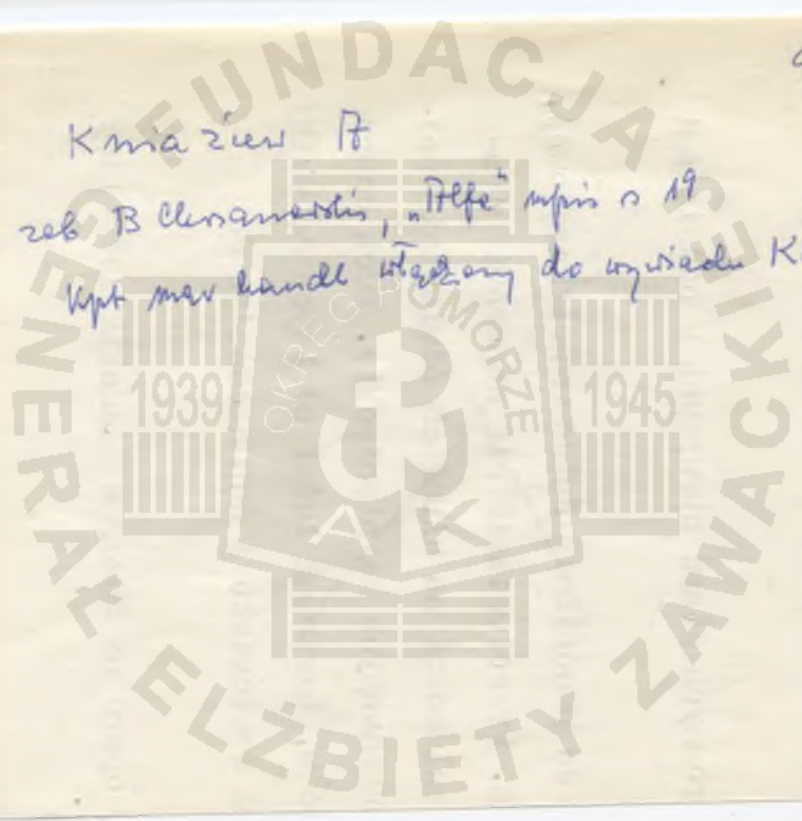 Kniaziew A
zob B Chrzanowski, „Alfa" mpis s 19
kpt mar handl włączony do wywiadu K
FUNDACJA GENERAŁ ELŻBIETY ZAWACKIEJ
OKRĘG POMORZE
1939 1945
AK